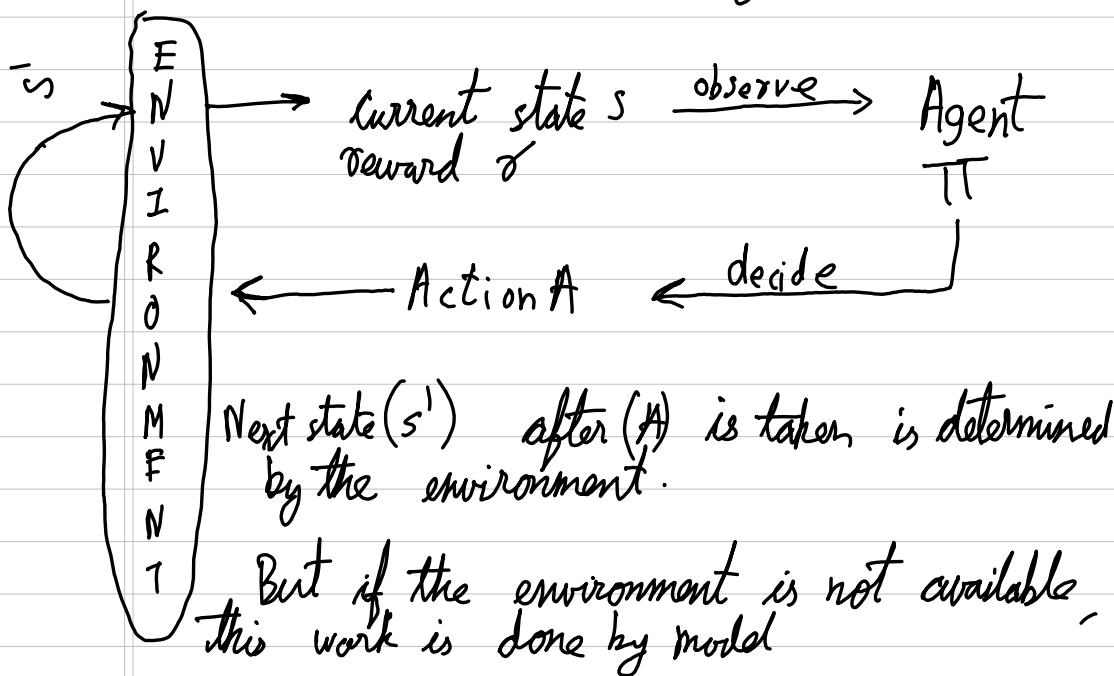 s'
E
N
V
I
R
O
N
M
E
N
T
current state s
reward r
observe
Agent
π
decide
Action A
Next state (s') after (A) is taken is determined
by the environment.
But if the environment is not available,
this work is done by model